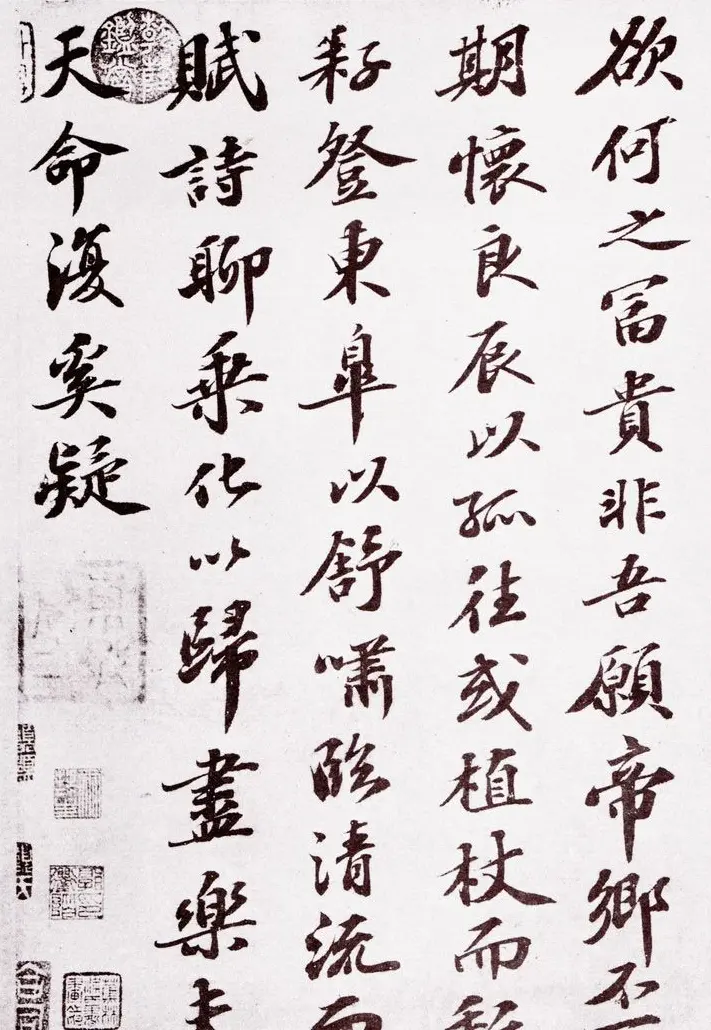 欲何之冨貴非吾願帝鄉不
期懷良辰以孤往或植杖而
耔登東皐以舒嘯臨清流而
賦詩聊乗化以歸盡樂夫
天命復奚疑
乾隆鑑賞